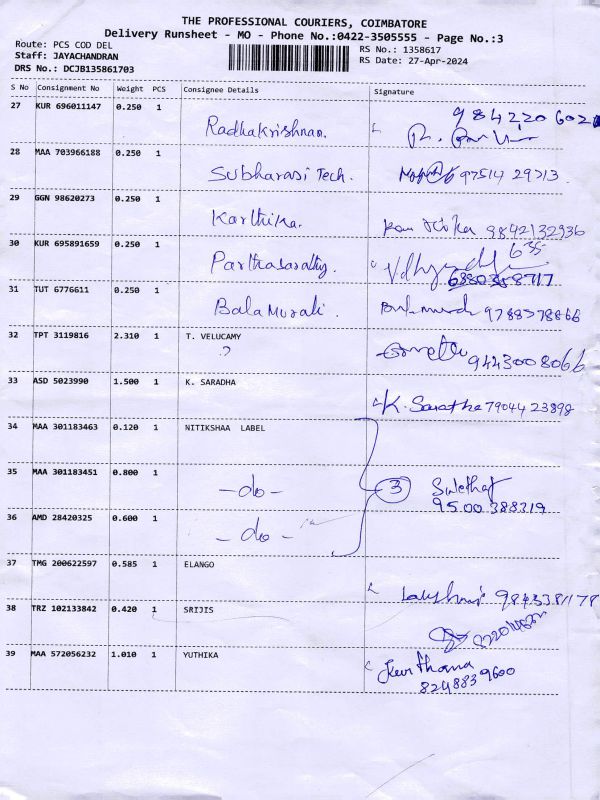 THE PROFESSIONAL COURIERS, COIMBATORE
Delivery Runsheet - MO - Phone No.:0422-3505555 - Page No.:3
Route: PCS COD DEL
Staff: JAYACHANDRAN
DRS No.: DCJB135861703
RS No.: 1358617
RS Date: 27-Apr-2024
S No Consignment No Weight PCS Consignee Details Signature
27 KUR 696011147 0.250 1 Radhakrishnan.
28 MAA 703966188 0.250 1 Subharasi Tech. 97514 29713
29 GGN 98620273 0.250 1 Karthika. 9842132936
30 KUR 695891659 0.250 1 Parthasarathy. 635
6380358717
31 TUT 6776611 0.250 1 Bala Murali. 9788578866
32 TPT 3119816 2.310 1 T. VELUCAMY
?
9443008066
33 ASD 5023990 1.500 1 K. SARADHA K. Saratha 79044 23898
34 MAA 301183463 0.120 1 NITIKSHAA LABEL
35 MAA 301183451 0.800 1 -do- 3
95.00 388319
36 AMD 28420325 0.600 1 -do-
37 TMG 200622597 0.585 1 ELANGO
38 TRZ 102133842 0.420 1 SRIJIS
39 MAA 572056232 1.010 1 YUTHIKA Keerthana
8248839600